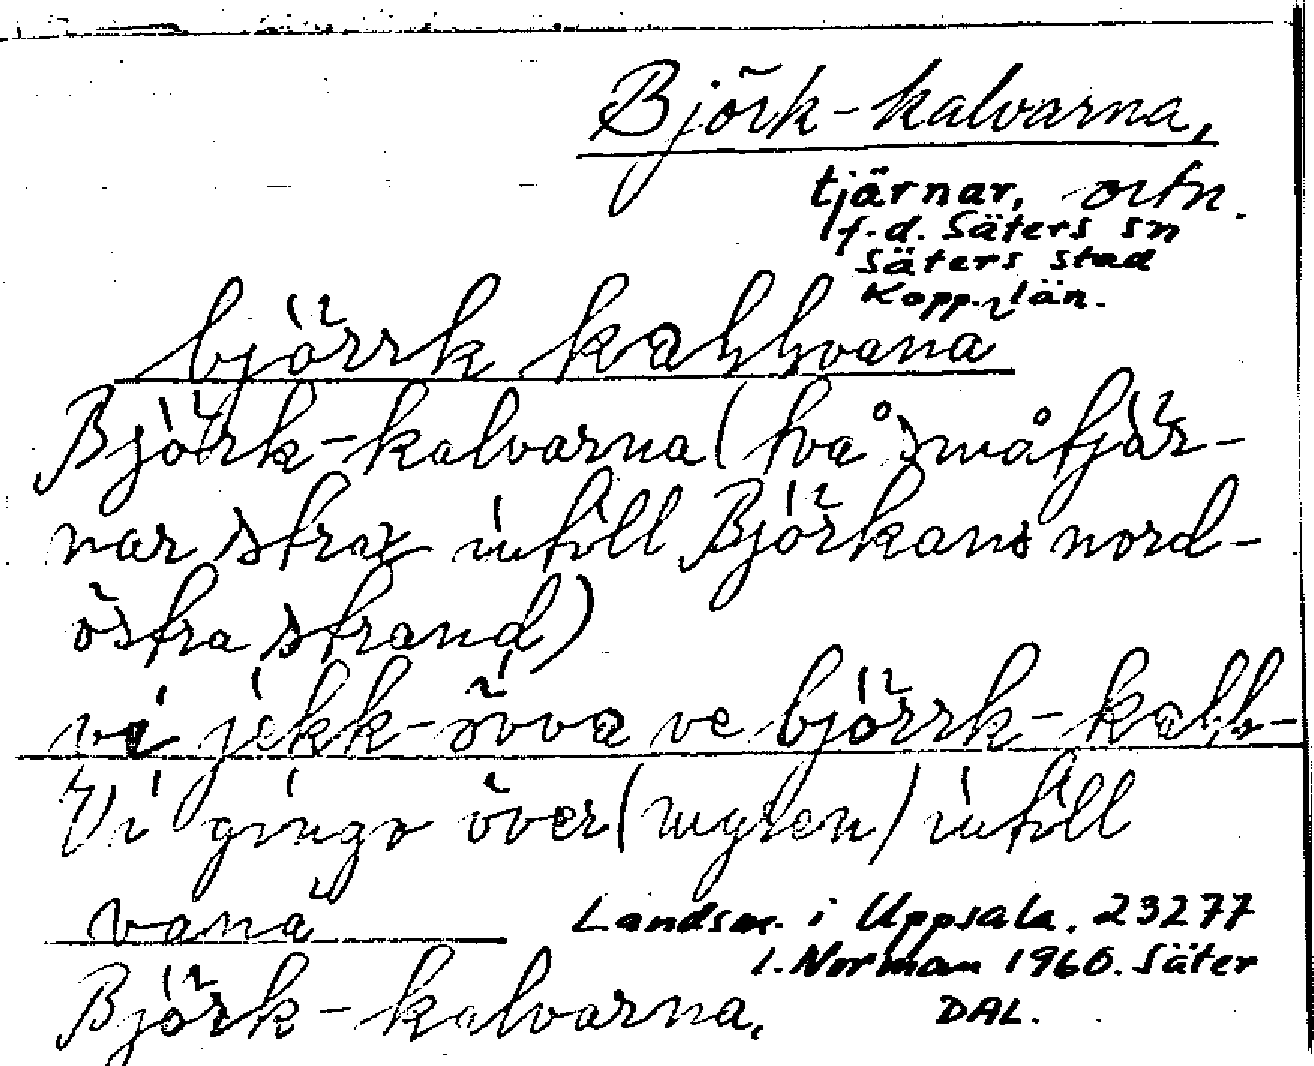 Björk-kalvarna,
tjärnar, ortn.
f.d. Säters sn
Säters stad
Kopp. län.
björrk kaḷḷvana
Björk-kalvarna (två småtjär-
nar strax intill Björkans nord-
östra strand)
vi jekk-övva ve björrk-kaḷḷ-
Vi gingo över (myren) intill
vana
Landsm. i Uppsala. 23277
I. Norman 1960. Säter
DAL.
Björk-kalvarna.